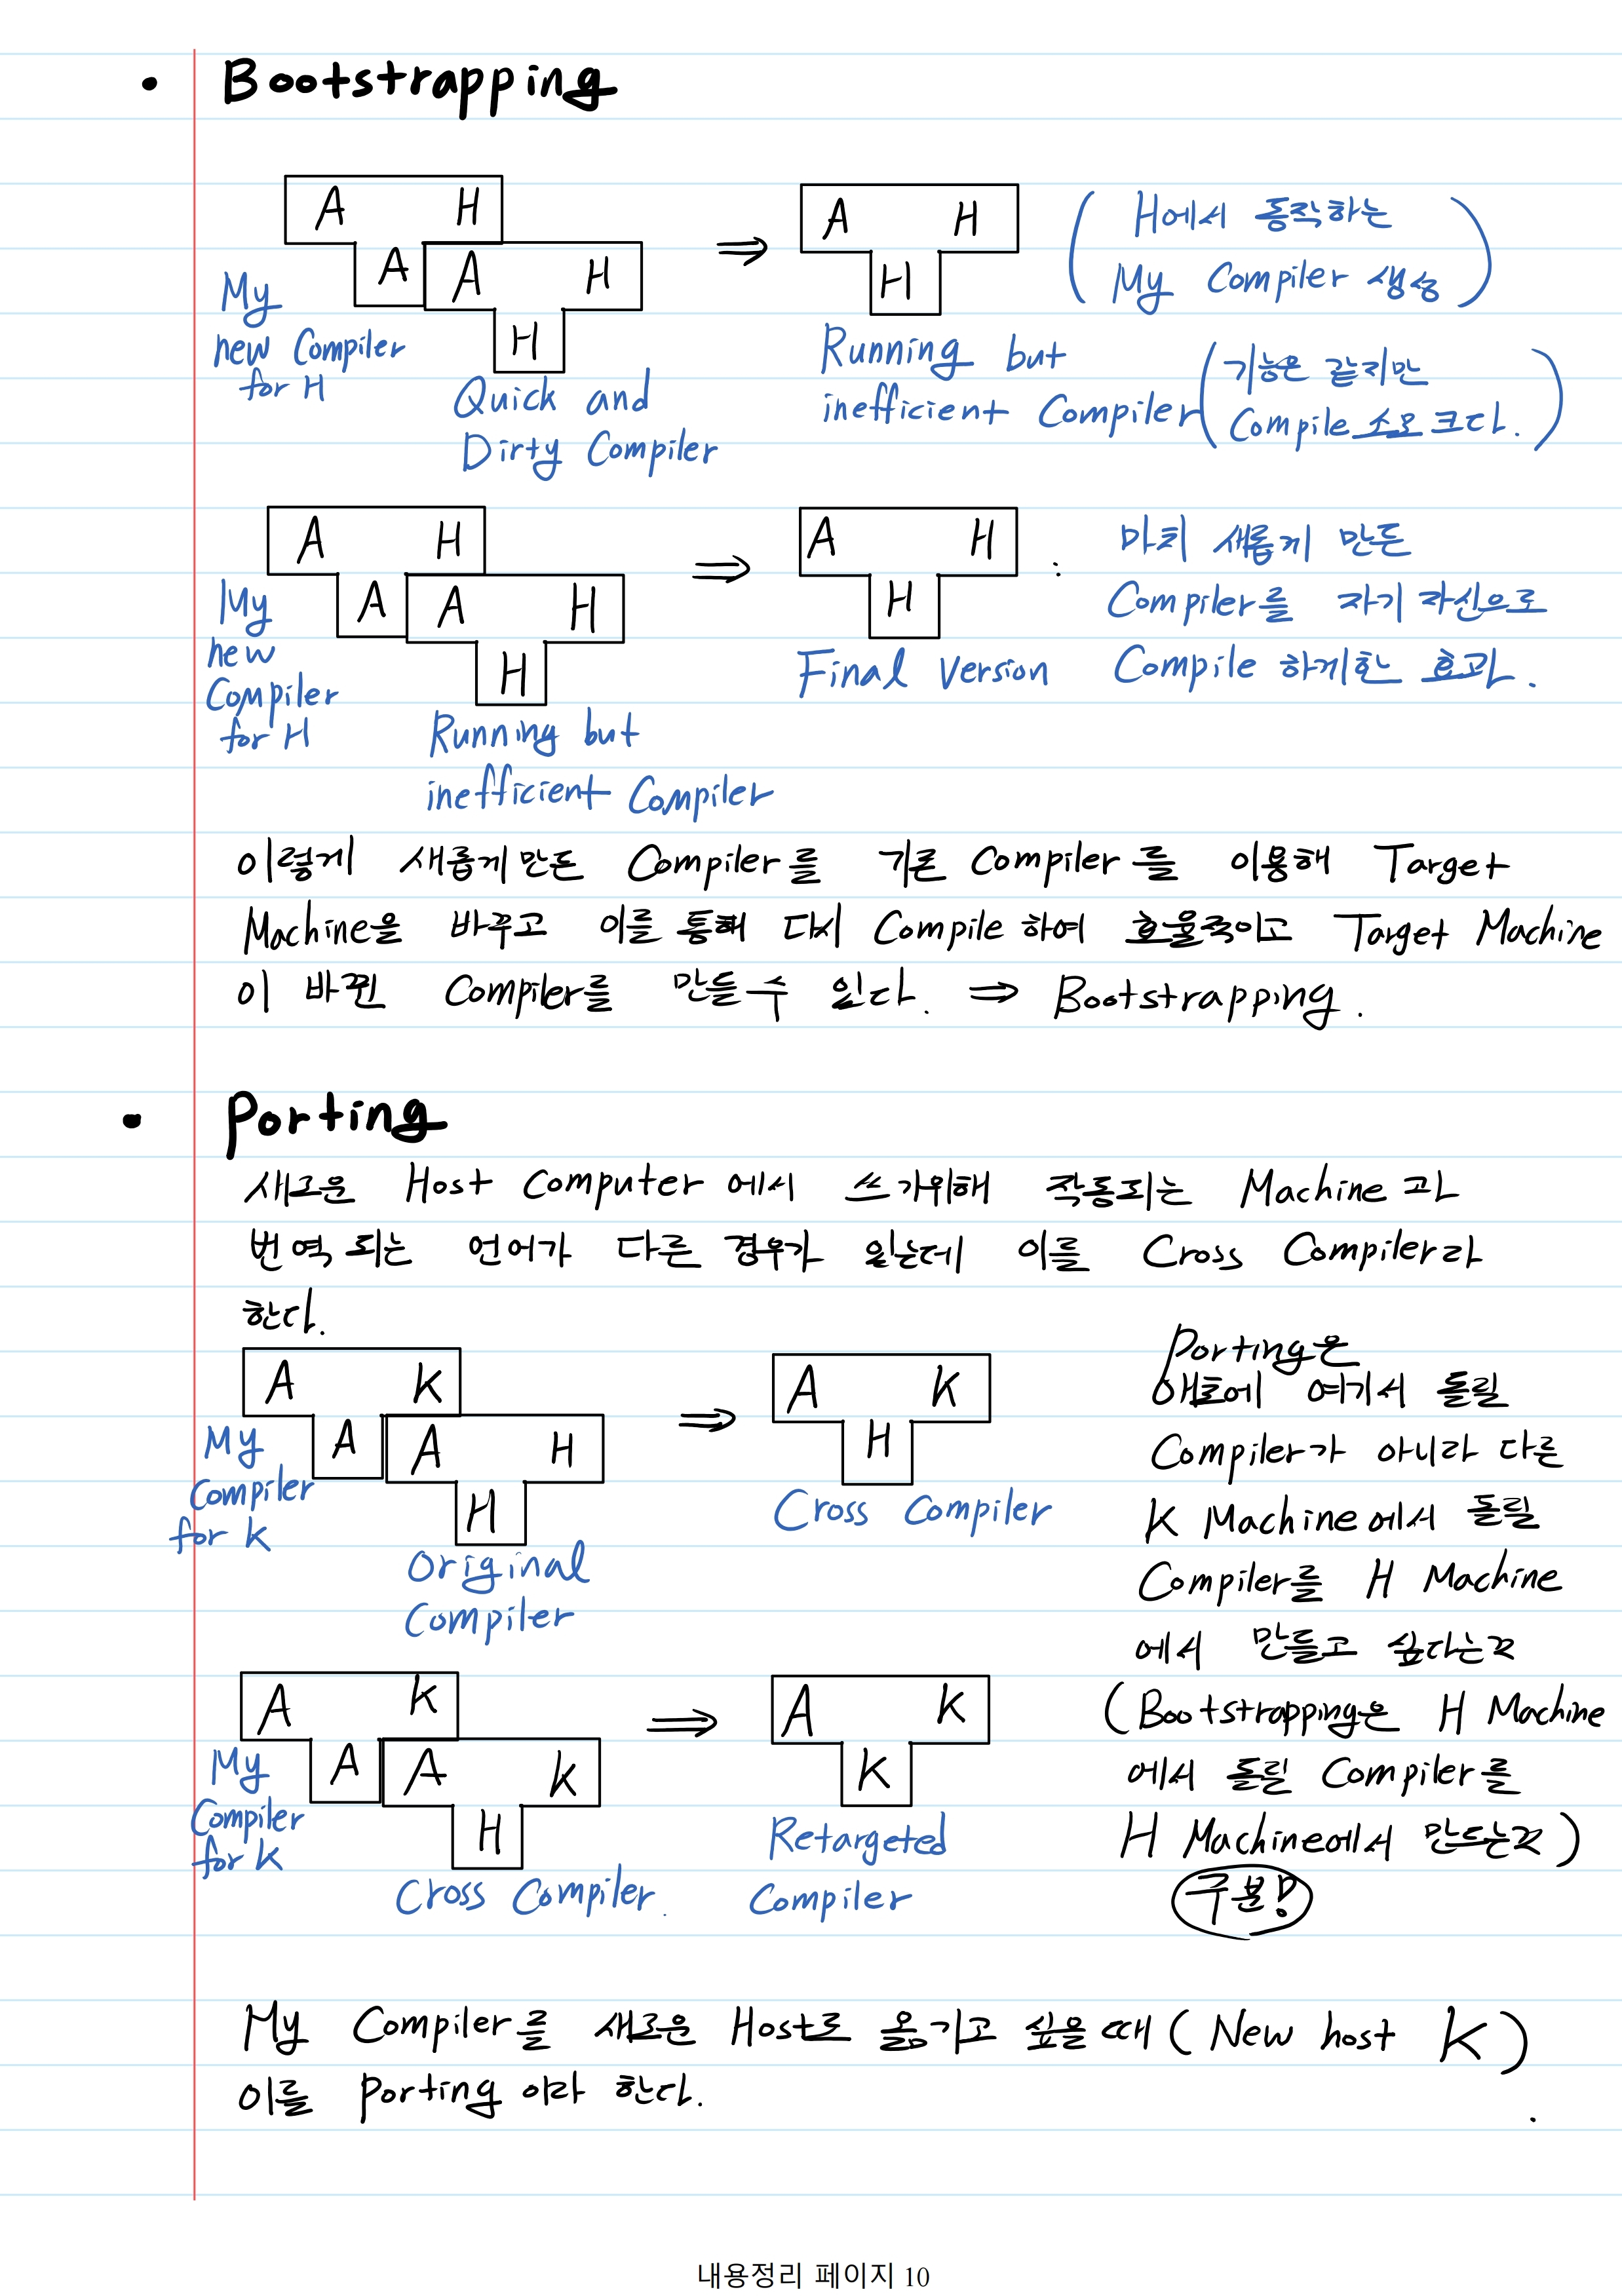 • Bootstrapping
A H
A A H
H
My
new Compiler
for H
Quick and
Dirty Compiler
⇒
A H
H
Running but
inefficient Compiler
( H에서 동작하는
My Compiler 생성 )
( 기능은 같지만
Compile 소모 크다. )
A H
A A H
H
My
new
Compiler
for H
Running but
inefficient Compiler
⇒
A H
H
Final Version
: 마치 새롭게 만든
Compiler를 자기 자신으로
Compile 하게한 효과.
이렇게 새롭게 만든 Compiler를 기존 Compiler를 이용해 Target
Machine을 바꾸고 이를 통해 다시 Compile 하여 효율적이고 Target Machine
이 바뀐 Compiler를 만들 수 있다. ⇒ Bootstrapping.
• Porting
새로운 Host Computer에서 쓰기위해 작동되는 Machine과
번역 되는 언어가 다른 경우가 있는데 이를 Cross Compiler라
한다.
A K
A A H
H
My
Compiler
for K
Original
Compiler
⇒
A K
H
Cross Compiler
A K
A A K
H
My
Compiler
for K
Cross Compiler.
⇒
A K
K
Retargeted
Compiler
Porting은
애초에 여기서 돌릴
Compiler가 아니라 다른
K Machine에서 돌릴
Compiler를 H Machine
에서 만들고 싶다는것
(Bootstrapping은 H Machine
에서 돌릴 Compiler를
H Machine에서 만드는것)
구분!
My Compiler를 새로운 Host로 옮기고 싶을 때 (New host K)
이를 Porting 이라 한다.
내용정리 페이지 10